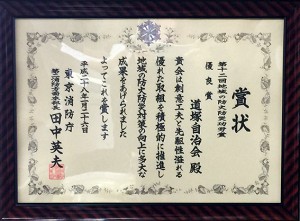 賞状
第十二回地域の防火防災功労賞
優良賞
道塚自治会 殿
貴会は創意工夫と先駆性溢れる
優れた取組を積極的に推進し
地域の防火防災対策の向上に多大な
成果をあげられました
よってこれを賞します
平成二十八年二月二十六日
東京消防庁
田中英夫